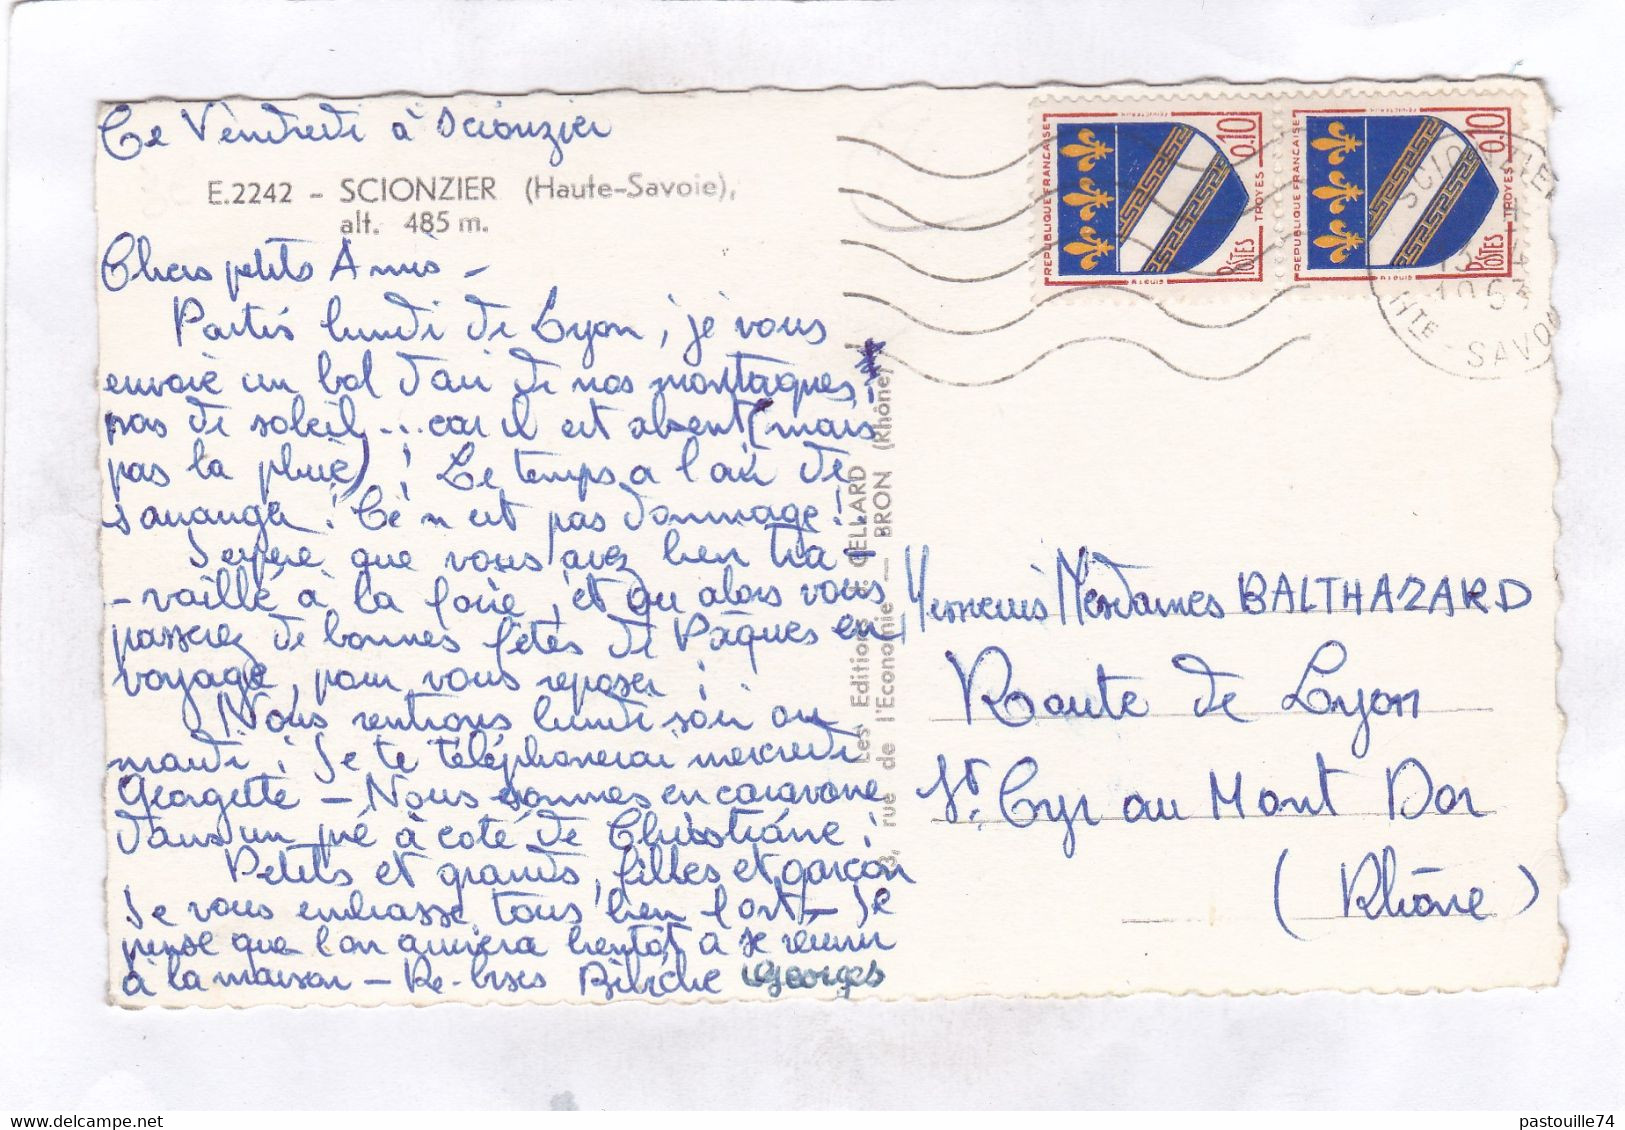 Ce Vendredi à Scionzier
E.2242 - SCIONZIER (Haute-Savoie),
alt. 485 m.
Chers petits Amis -
Partis lundi de Lyon, je vous
envoie un bol d'air de nos montagnes,
pas de soleil... car il est absent (mais
pas la pluie) ! Le temps a l'air de
s'arranger ! Ce n'est pas dommage !
J'espère que vous avez bien tra
-vaillé à la foire, et qu'alors vous
passerez de bonnes fêtes de Pâques en
voyage, pour vous reposer !
Nous rentrons lundi soir ou
mardi ; Je te téléphonerai mercredi
Georgette - Nous sommes en caravane
dans un pré à coté de Christiane !
Petits et grands, filles et garçon
Je vous embrasse tous bien fort - Je
pense que l'on arrivera bientôt à se réunir
à la maison - Re-bises Georges
Les Editions CELLARD
3, rue de l'Economie — BRON (Rhône)
REPUBLIQUE FRANCAISE
0,10
TROYES
POSTES
REPUBLIQUE FRANCAISE
0,10
TROYES
POSTES
SCIONZIER
1963
HTE - SAVOIE
Messieurs Mesdames BALTHAZARD
Route de Lyon
St. Cyr au Mont Dor
(Rhône)
pastouille74